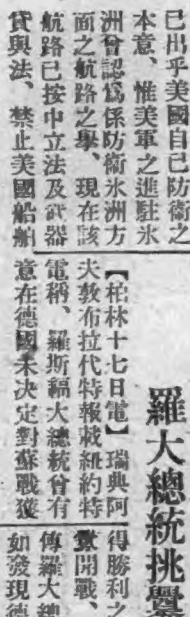 已出乎美國自已防衛之
本意、惟美軍之進駐氷
洲曾認爲係防衛氷洲方
面之航路之擧、現在該
航路已按中立法及武器
貸與法、禁止美國船舶
羅大總統挑釁
【柏林十七日電】瑞典阿
夫敦布拉代特報載紐約特
電稱、羅斯福大總統曾有
意在德國未決定對蘇戰獲
得勝利之
開戰、
傳羅大總
如發現德